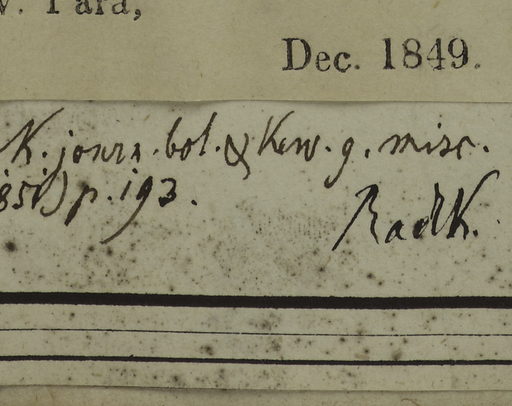 Para,
Dec. 1849.
K. journ. bot. & Kew. g. misc.
p. 193.
Radlk.